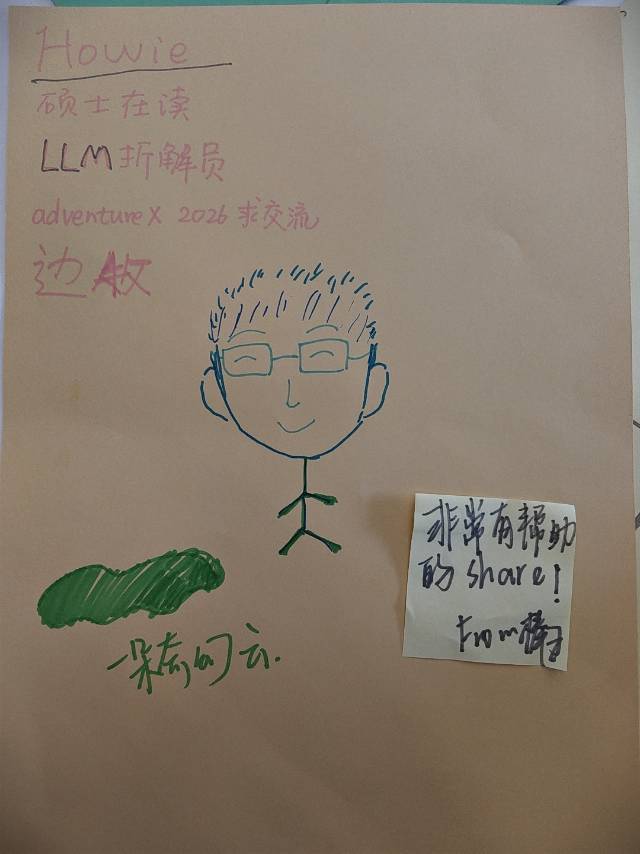 Howie
硕士在读
LLM 拆解员
adventureX 2026 求交流
边牧
非常有帮助
的 share!
From
一朵奇的云.